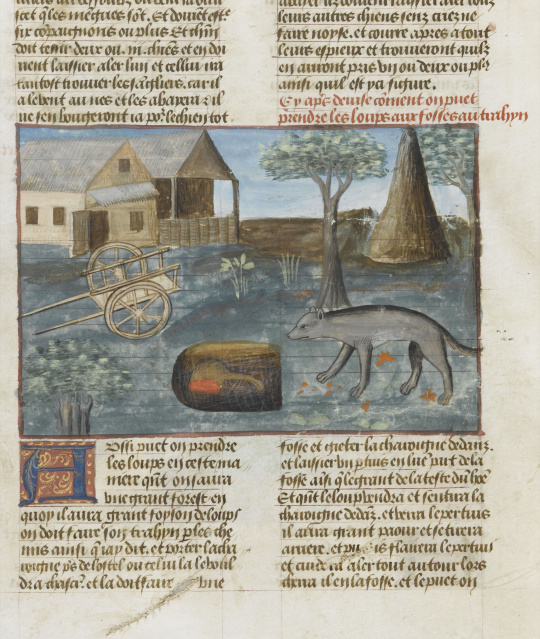 sct q̃ les megrés sõt. Et doiuẽt estre
six cõpaignons ou plus. Et chũn
doit tenir deux ou .iii. chiẽs et en doi
uent laissier aler lun et cellui ira
tantost trouuer les sãgliers. car il
a le vent au nes et les abaiera et il
ne sen bougeront ia por̃ le chien tot
leurs autres chiens senz criez ne
faire noyse. et courre apres a tout
leurs espieux et trouueront quilz
en auront pris vn ou deux ou plꝰ
ainsi quil est ya figure.
Cy apẽs deuise cõment on puet
prendre les loups aux fosses au trahyn
Aussi puet on prendre
les loups en ceste ma
niere q̃nt on saura
vne grant forest en
quoy il aura grant foyson de loups
on doit faire son trahyn p̃ les che
mis ainsi q̃ iay dit. et porter la cha
roigne p̃s de lostel ou cellui la le voul
dra chacier. et la doit faire vne
fosse et gieter la charoigne dedanz.
et laissier vn ptuis en lune part de la
fosse aisi q̃ le grant de la teste du lou
Et q̃nt le loup viendra et sentira la
charoigne dedãz. et verra le pertuis
il aura grant paour et se tirera
arriere. et puis flairera le pertuis
et cuidera aler tout autour lors
cherra il en la fosse. et le puet on